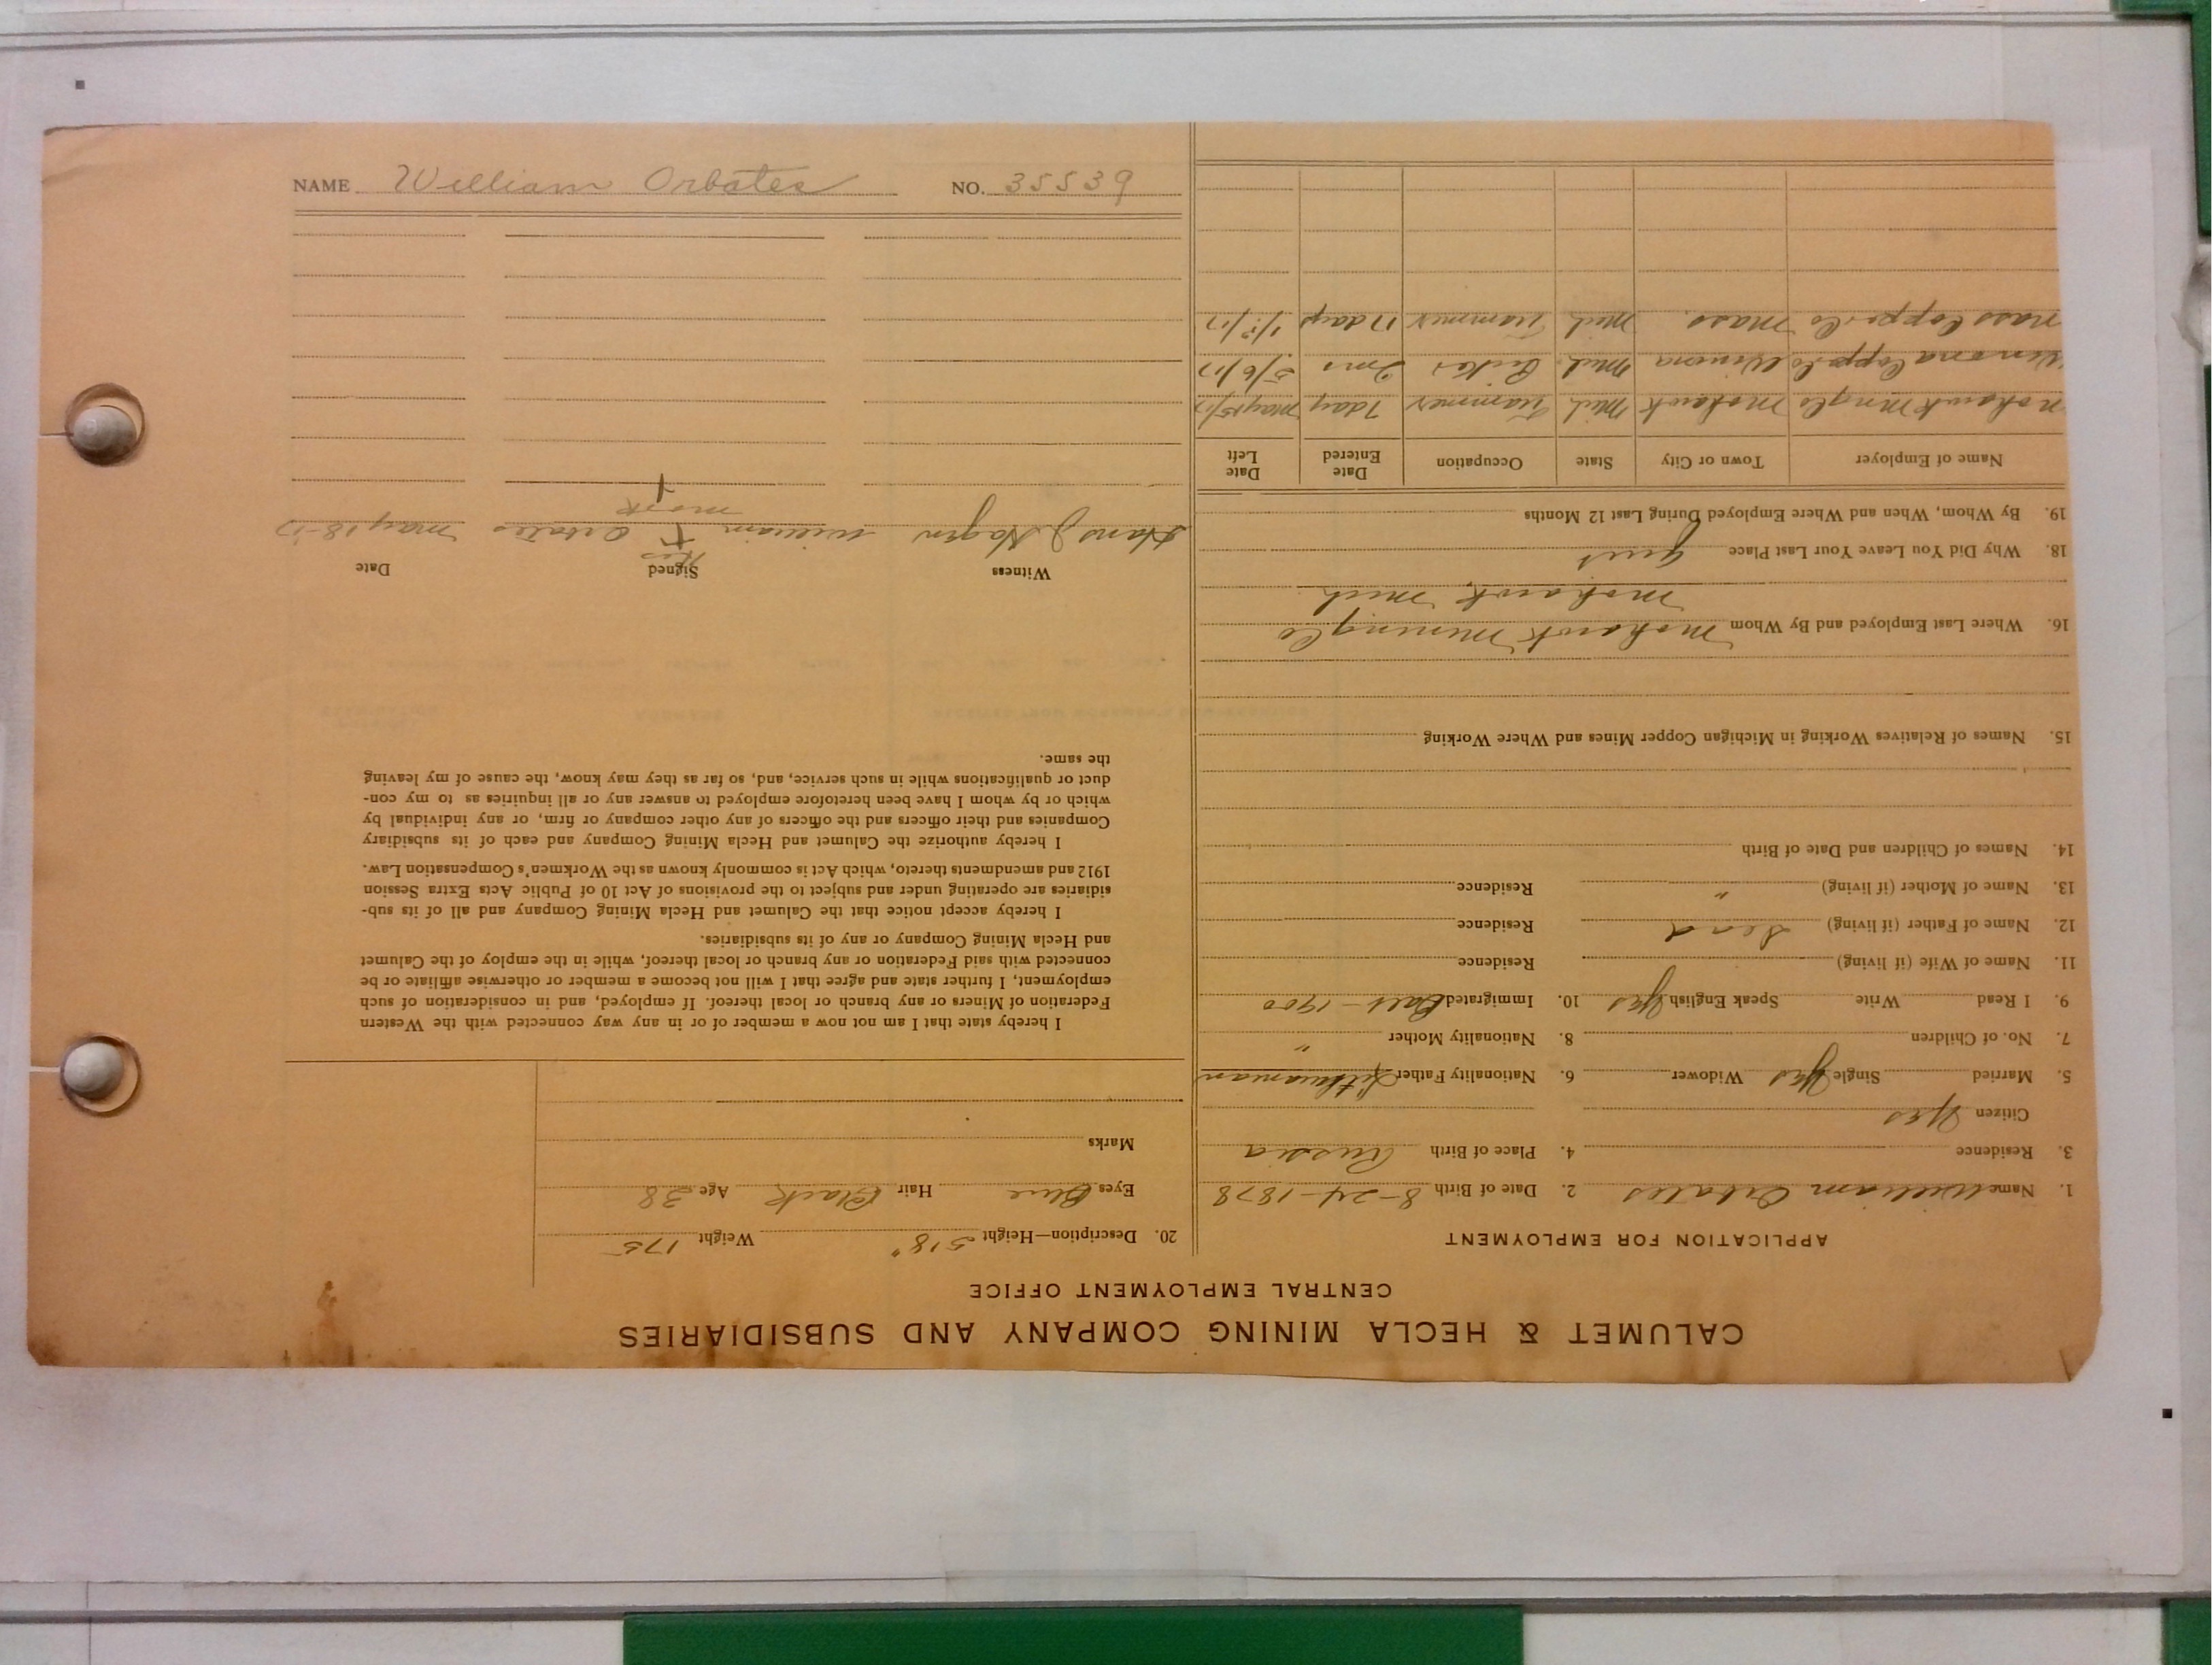 NAME William Orbates NO. 35539
CALUMET & HECLA MINING COMPANY AND SUBSIDIARIES
CENTRAL EMPLOYMENT OFFICE
APPLICATION FOR EMPLOYMENT
1. Name William Orbates 2. Date of Birth 8-24-1878
3. Residence 4. Place of Birth Russia
Citizen Yes
5. Married Single Yes Widower 6. Nationality Father Lithuanian
7. No. of Children 8. Nationality Mother "
9. I Read Write Speak English Yes 10. Immigrated 1900
11. Name of Wife (if living) Residence
12. Name of Father (if living) Dead Residence
13. Name of Mother (if living) " Residence
14. Names of Children and Date of Birth
15. Names of Relatives Working in Michigan Copper Mines and Where Working
16. Where Last Employed and By Whom Mohawk Mining Co
Mohawk Mich
18. Why Did You Leave Your Last Place Quit
19. By Whom, When and Where Employed During Last 12 Months
Name of Employer Town or City State Occupation Date Entered Date Left
Mohawk Mng Co Mohawk Mich Trammer 7 day May 15/17
Winona Copper Co Winona Mich 2 ms 5/6/17
Mass Copper Co Mass. Mich Trammer 17 days
20. Description—Height 5'8" Weight 175
Eyes Blue Hair Black Age 38
Marks
I hereby state that I am not now a member of or in any way connected with the Western
Federation of Miners or any branch or local thereof. If employed, and in consideration of such
employment, I further state and agree that I will not become a member or otherwise affiliate or be
connected with said Federation or any branch or local thereof, while in the employ of the Calumet
and Hecla Mining Company or any of its subsidiaries.
I hereby accept notice that the Calumet and Hecla Mining Company and all of its sub-
sidiaries are operating under and subject to the provisions of Act 10 of Public Acts Extra Session
1912 and amendments thereto, which Act is commonly known as the Workmen's Compensation Law.
I hereby authorize the Calumet and Hecla Mining Company and each of its subsidiary
Companies and their officers and the officers of any other company or firm, or any individual by
which or by whom I have been heretofore employed to answer any or all inquiries as to my con-
duct or qualifications while in such service, and, so far as they may know, the cause of my leaving
the same.
Witness Signed Date
his
Hans J Hagen William X Orbates May 18-17
mark